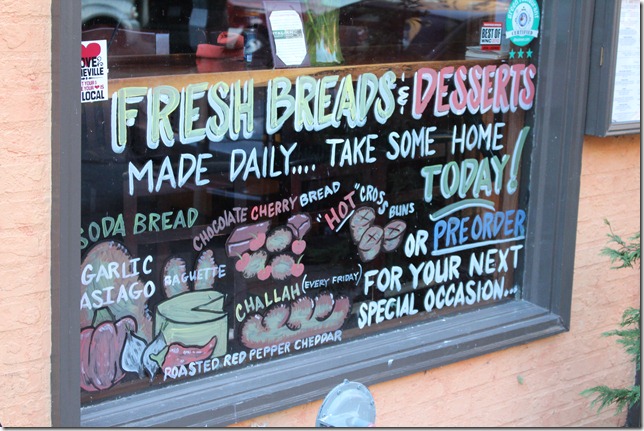 FRESH BREADS & DESSERTS
MADE DAILY.... TAKE SOME HOME
TODAY!
OR PREORDER
FOR YOUR NEXT
SPECIAL OCCASION...
SODA BREAD
CHOCOLATE CHERRY BREAD
"HOT" CROSS BUNS
GARLIC
ASIAGO
BAGUETTE
CHALLAH (EVERY FRIDAY)
ROASTED RED PEPPER CHEDDAR
BEST OF
LOCAL
CERTIFIED